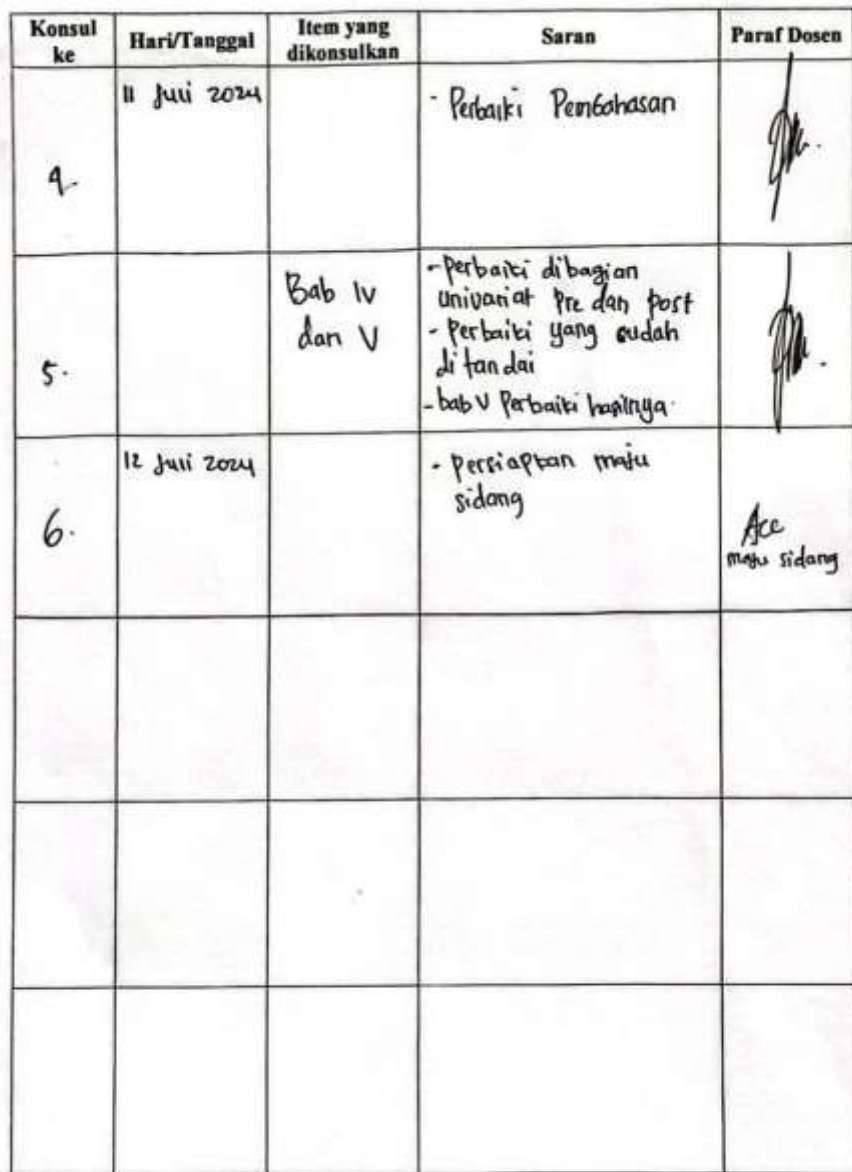 Konsul ke
Hari/Tanggal
Item yang dikonsulkan
Saran
Paraf Dosen
4.
11 Juli 2024
- Perbaiki Pembahasan
5.
Bab IV
dan V
- perbaiki dibagian
univariat Pre dan post
- perbaiki yang sudah
di tandai
- bab V Perbaiki hasilnya.
6.
12 Juli 2024
- persiapkan maju
sidang
Acc
maju sidang